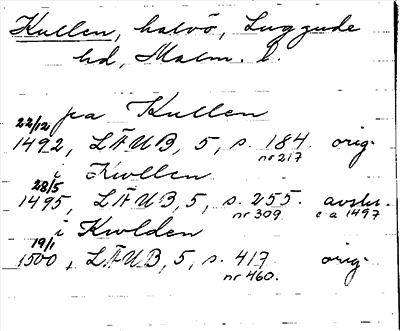 Kullen, halvö, Luggude
hd, Malm. l.
pa Kullen
22/12
1492, LÄUB, 5, s. 184. orig.
nr 217
i Kwllen
28/5
1495, LÄUB, 5, s. 255. avskr.
nr 309 c a 1497
i Kwlden
19/1
1500, LÄUB, 5, s. 417 orig.
nr 460.